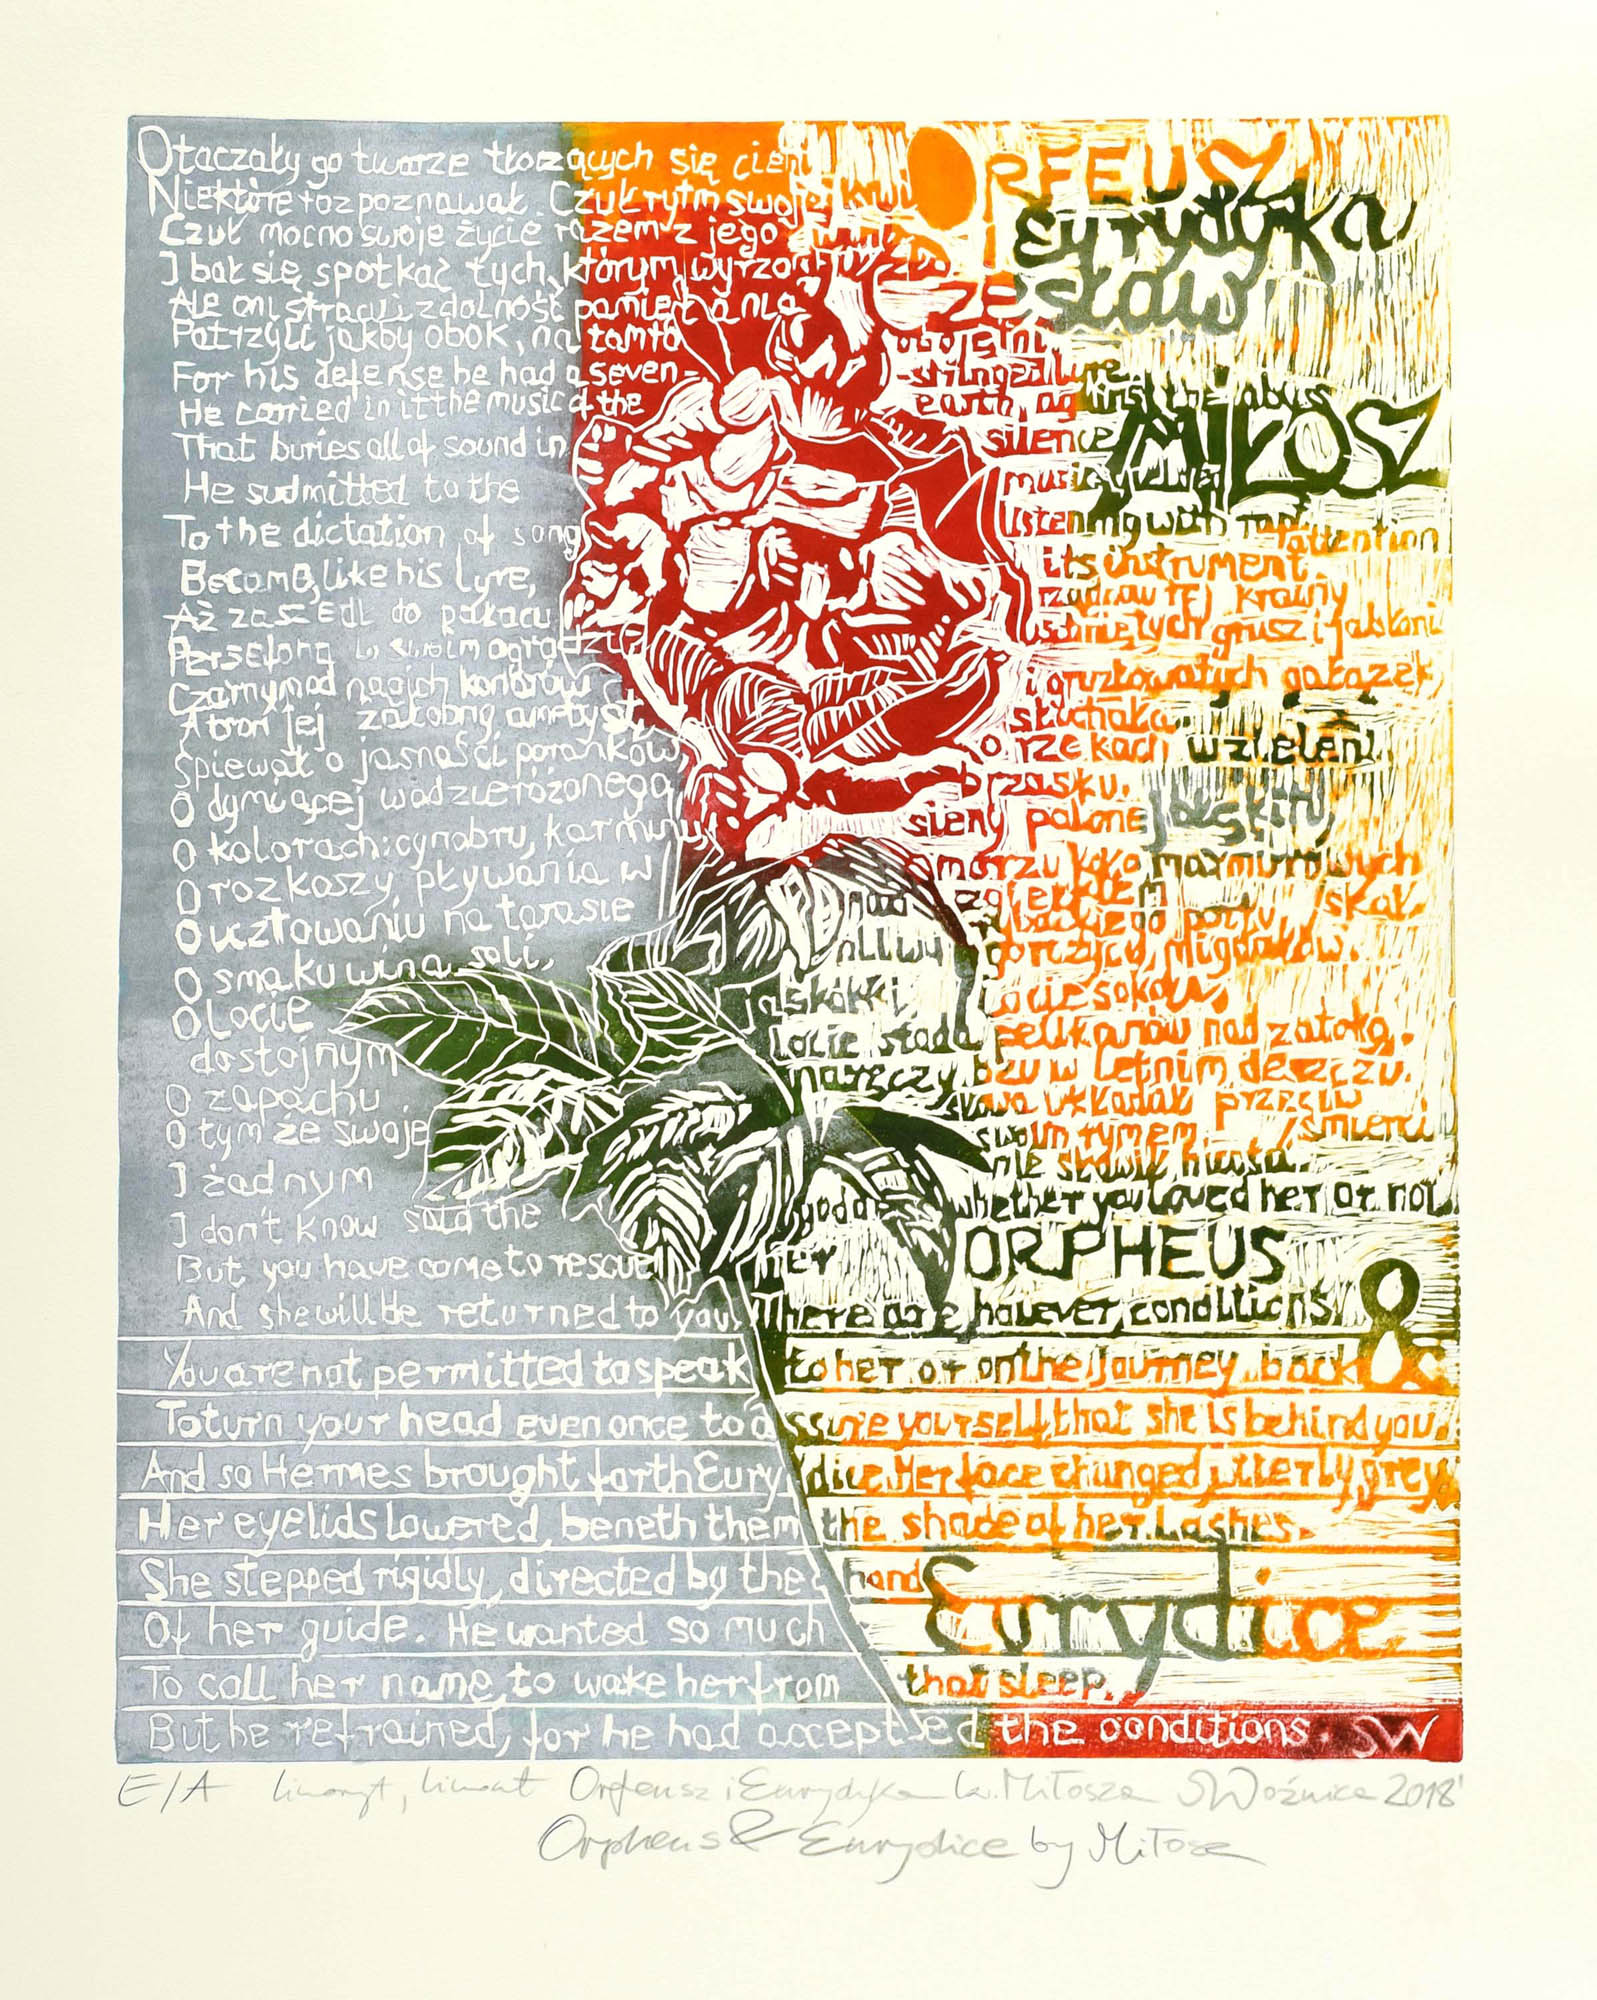 Otaczały go twarze tłoczących się cieni
ORFEUSZ
Niektóre rozpoznawał. Czuł rytm swojej krwi
Eurydyka
Czuł mocno swoje życie razem z jego winą
I bał się spotkać tych, którym wyrządził zło
Czesław
Ale oni stracili zdolność pamiętania
Patrzyli jakby obok, na tamto obojętni
For his defense he had a seven-stringed lyre
He carried in it the music of the earth, against the abyss
MIŁOSZ
That buries all of sound in silence
He sudmitted to the music, yielded
To the dictation of song listening with rapt attention
Became, like his lyre, its instrument.
Aż zaszedł do pałacu rządców tej krainy
Persefona w swoim ogrodzie uschniętych grusz i jabłoni
Czarnym od nagich konarów i gruzłowatych gałązek
A tron jej żałobny ametyst, słuchała
Śpiewał o jasności poranków, o rzekach w zieleni
O dymiącej wodzie różanego brzasku.
O kolorach: cynobru, karminu, sieny palonej, błękitu
O rozkoszy pływania w morzu koło marmurowych skał.
O ucztowaniu na tarasie nad zgiełkiem rybackiego portu
O smaku wina, soli, oliwy, gorczycy, migdałów.
O locie jaskółki, locie sokoła,
dostojnym locie stada pelikanów nad zatoką.
O zapachu naręczy bzu w letnim deszczu.
O tym że swoje słowa układał przeciw śmierci
I żadnym swoim rymem nie sławił nicości.
I don't know said the goddess whether you loved her or not
ORPHEUS
But you have come to rescue her
&
And she will be returned to you. There are, however, conditions
You are not permitted to speak to her or on the journey back
To turn your head even once to assure yourself, that she is behind you.
And so Hermes brought forth Eurydice. Her face changed, utterly, grey
Her eyelids lowered, beneth them the shade of her lashes.
She stepped rigidly, directed by the hand
Eurydice
Of her guide. He wanted so much
To call her name, to wake her from that sleep.
But he refrained, for he had accepted the conditions. SW
E/A linoryt, linocut Orfeusz i Eurydyka Cz. Miłosza SWoźnica 2018'
Orpheus & Eurydice by Miłosz